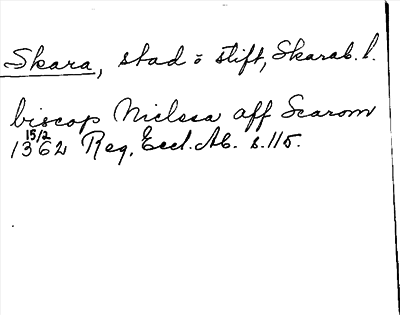 Skara, stad o stift, Skarab. l.
biscop Niclssa aff Scarom
15/2
1362 Reg. Eccl. Ab. s. 115.